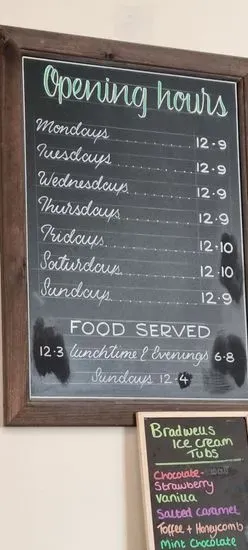 Opening hours
Mondays.................12·9
Tuesdays................12·9
Wednesdays............12·9
Thursdays..............12·9
Fridays..................12·10
Saturdays..............12·10
Sundays................12·9
FOOD SERVED
12·3 lunchtime & Evenings 6·8
Sundays 12·4
Bradwells
Ice cream
Tubs
Chocolate-
Strawberry
Vanilla
Salted caramel
Toffee + Honeycomb
Mint Chocolate